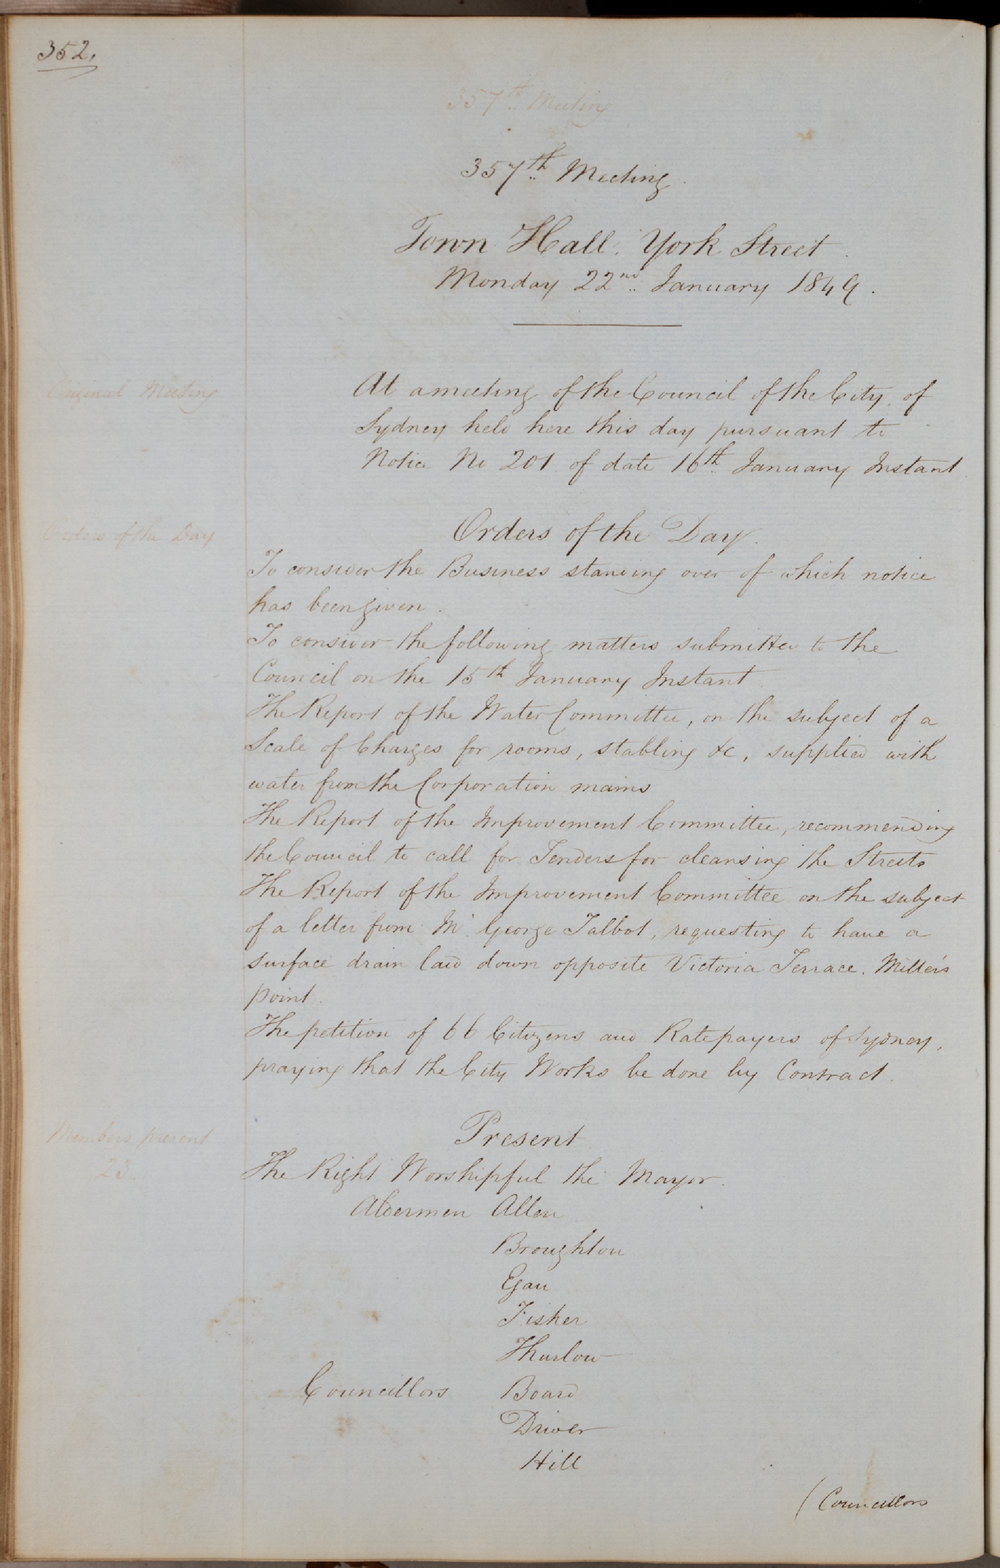 352.
357th Meeting
357th Meeting.
Town Hall. York Street.
Monday 22nd January 1849.
Original Meeting
At a meeting of the Council of the City of
Sydney held here this day pursuant to
Notice No 201 of date 16th January Instant
Orders of the Day
Orders of the Day.
To consider the Business standing over of which notice
has been given.
To consider the following matters submitted to the
Council on the 15th January Instant.
The Report of the Water Committee, on the subject of a
Scale of Charges for rooms, stabling &c, supplied with
water from the Corporation mains
The Report of the Improvement Committee, recommending
the Council to call for Tenders for cleansing the Streets
The Report of the Improvement Committee on the subject
of a letter from Mr George Talbot, requesting to have a
surface drain laid down opposite Victoria Terrace. Miller's
point.
The petition of 66 Citizens and Ratepayers of Sydney,
praying that the City Works be done by Contract.
Members present
23.
Present
The Right Worshipful the Mayor.
Aldermen Allen
Broughton
Egan
Fisher
Thurlow
Councillors Board
Driver
Hill
(Councillors